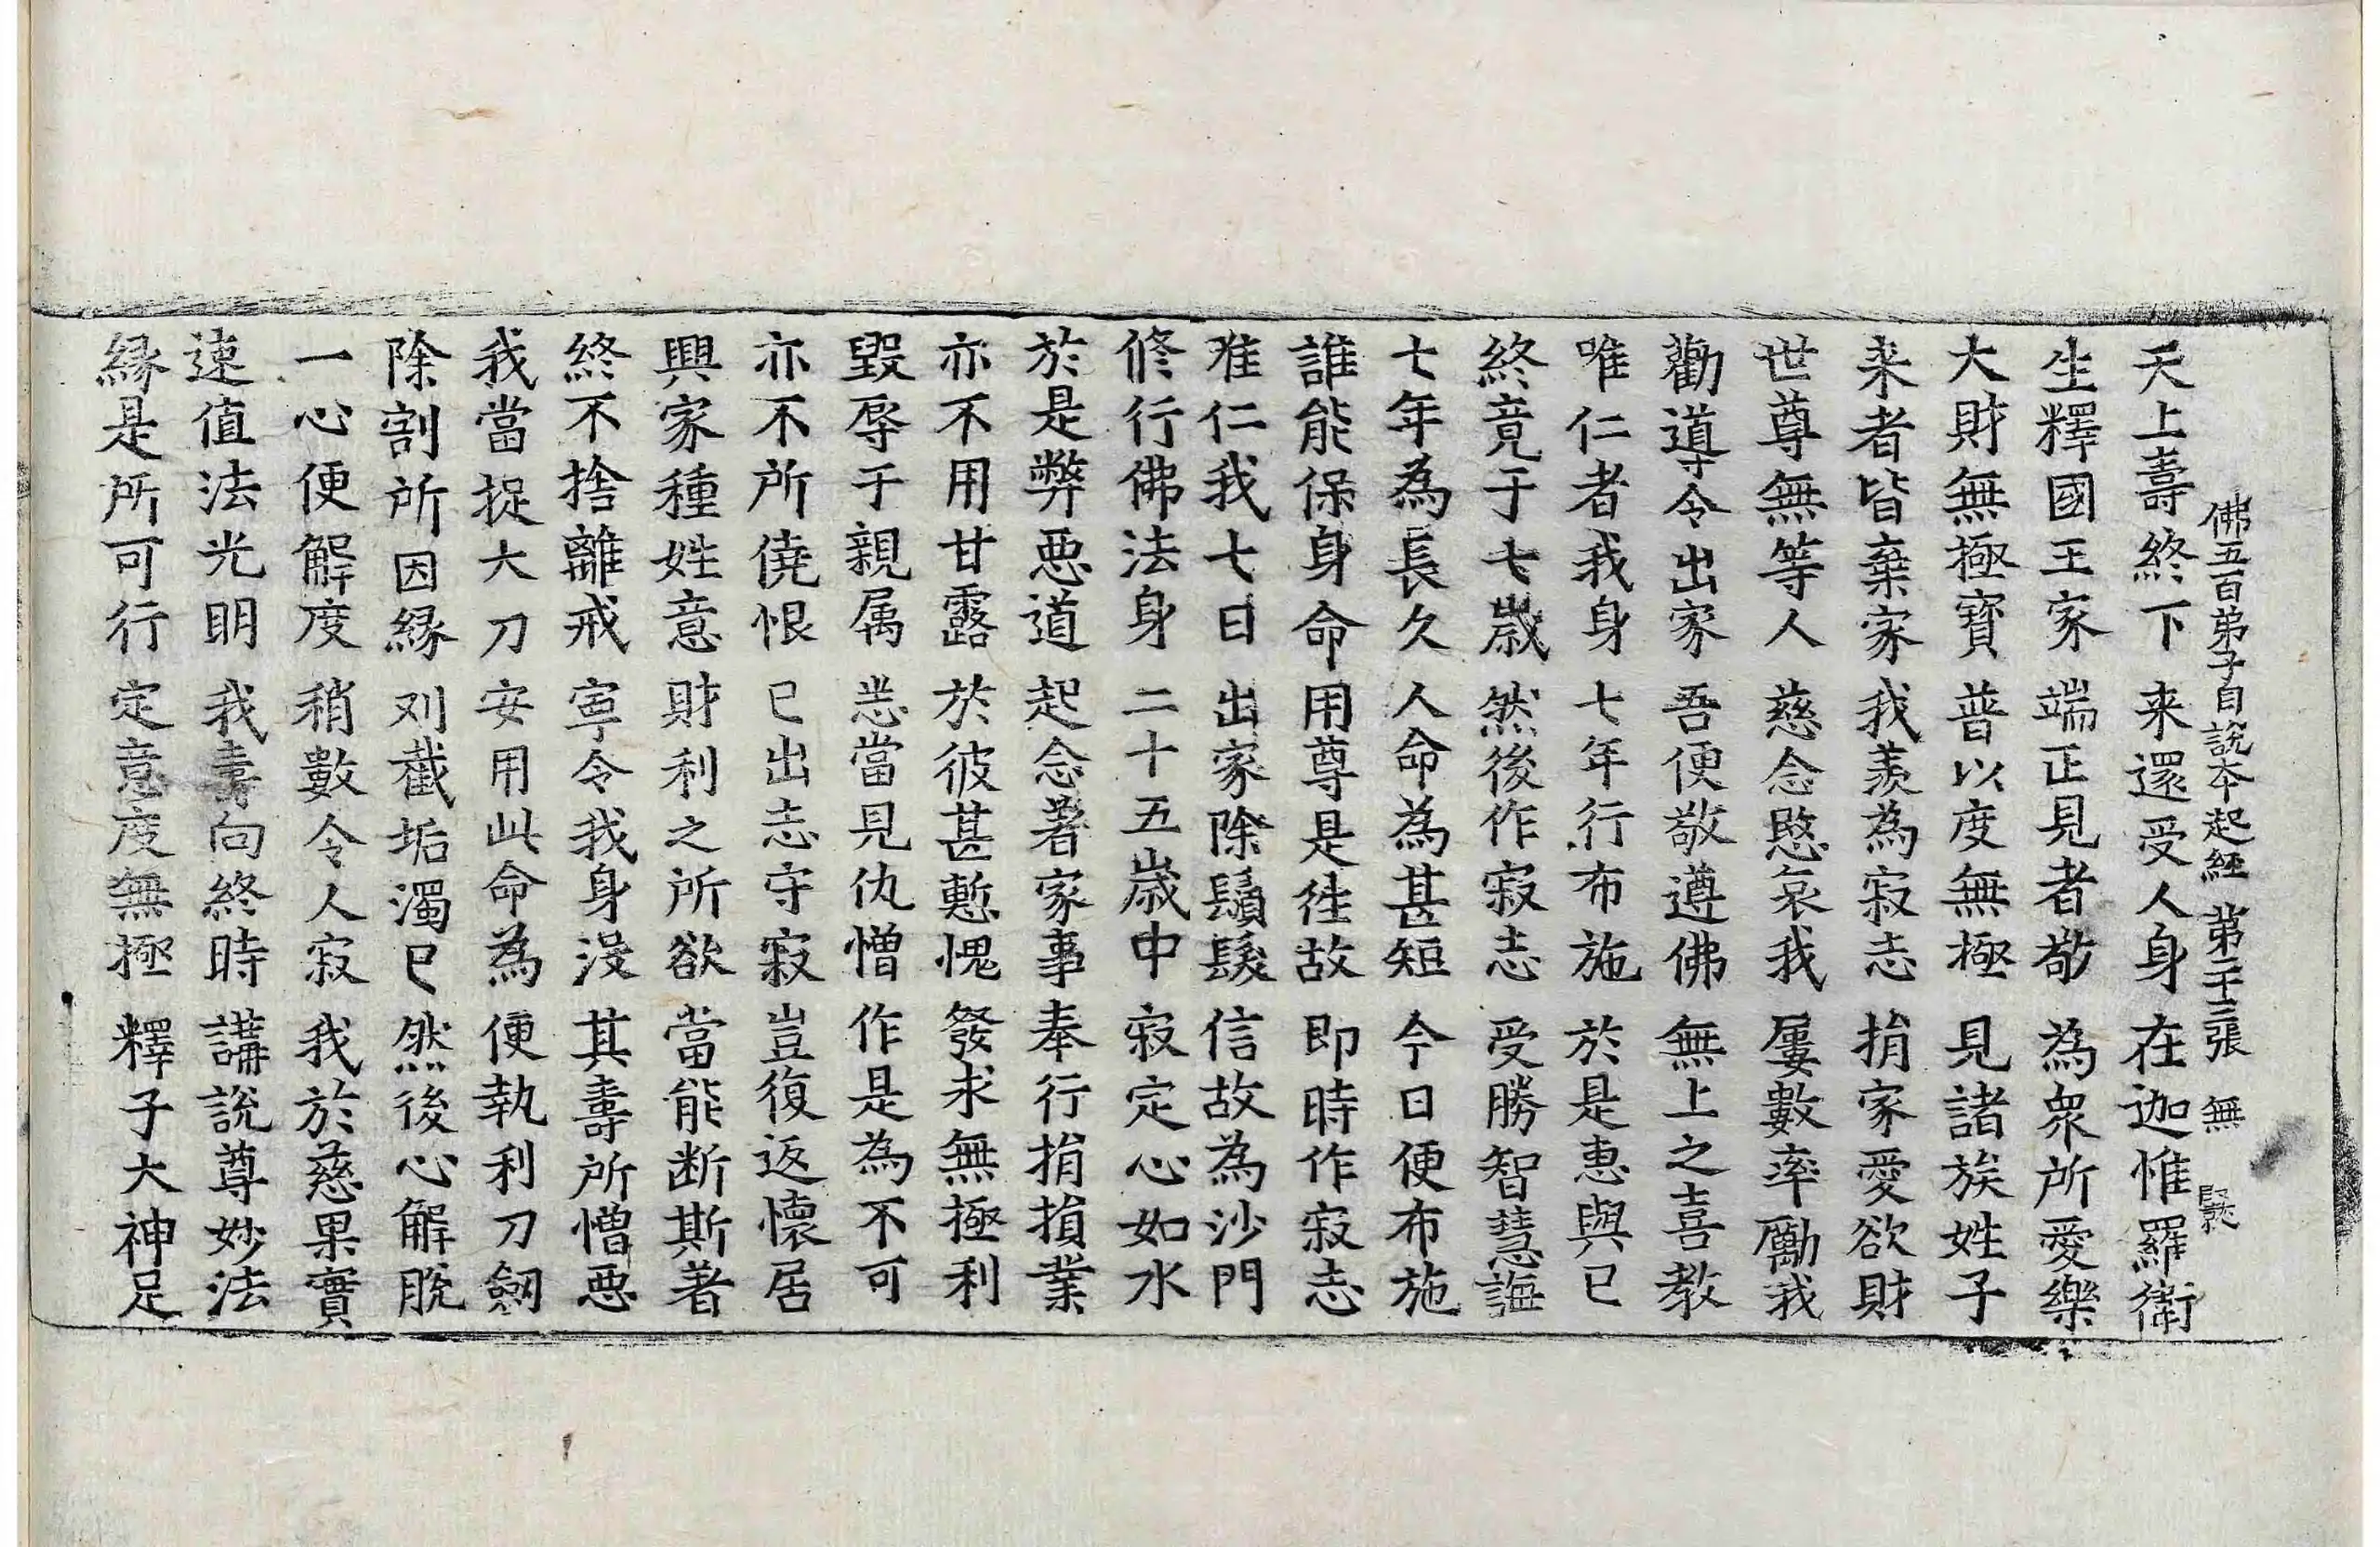 佛五百弟子自說本起經 第二十三張 無
天上壽終下 来還受人身 在迦惟羅衛
生釋國王家 端正見者敬 為衆所愛樂
大財無極寳 普以度無極 見諸族姓子
来者皆棄家 我羨為寂志 捐家愛欲財
世尊無等人 慈念愍哀我 屢數率勵我
勸導令出家 吾便敬遵佛 無上之喜教
唯仁者我身 七年行布施 於是惠與已
終竟于七歳 然後作寂志 受勝智慧誨
七年為長久 人命為甚短 今日便布施
誰能保身命 用尊是徃故 即時作寂志
唯仁我七日 出家除鬚髮 信故為沙門
修行佛法身 二十五歳中 寂定心如水
於是弊惡道 起念著家事 奉行捐損業
亦不用甘露 於彼甚慙愧 發求無極利
毀辱于親属 恙當見仇憎 作是為不可
亦不所僥恨 已出志守寂 豈復返懷居
興家種姓意 財利之所欲 當能断斯著
終不捨離戒 寧令我身没 其壽所憎惡
我當捉大刀 安用此命為 便執利刀劒
除割所因縁 刈截垢濁已 然後心解脫
一心便解度 稍數令人寂 我於慈果實
速值法光明 我壽向終時 講說尊妙法
縁是所可行 定意度無極 釋子大神足